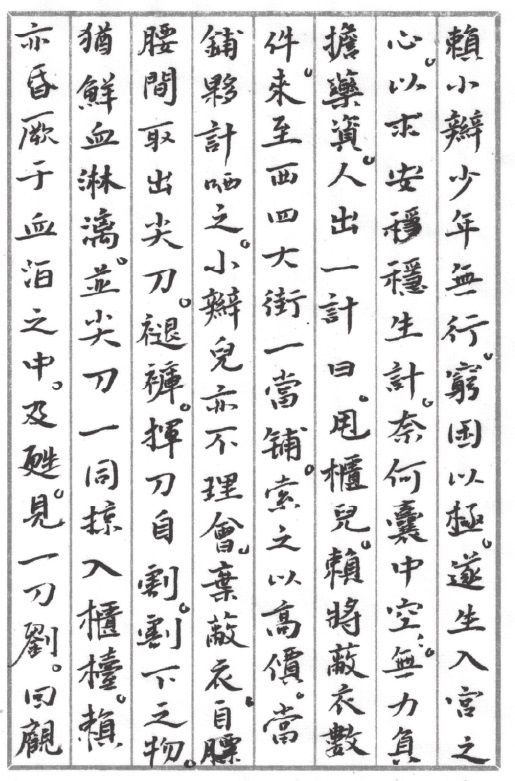 賴小辮少年無行。窮困以極。遂生入宮之
心。以求安穩穩生計。奈何囊中空空。無力負
擔藥資。人出一計曰。甩櫃兒。賴將敝衣數
件。來至西四大街一當鋪。索之以高價。當
鋪夥計哂之。小辮兒亦不理會。棄敝衣。自膘
腰間取出尖刀。褪褲。揮刀自割。割下之物。
猶鮮血淋漓。並尖刀一同掠入櫃檯。賴
亦昏厥于血泊之中。及甦。見一刀劉。回觀